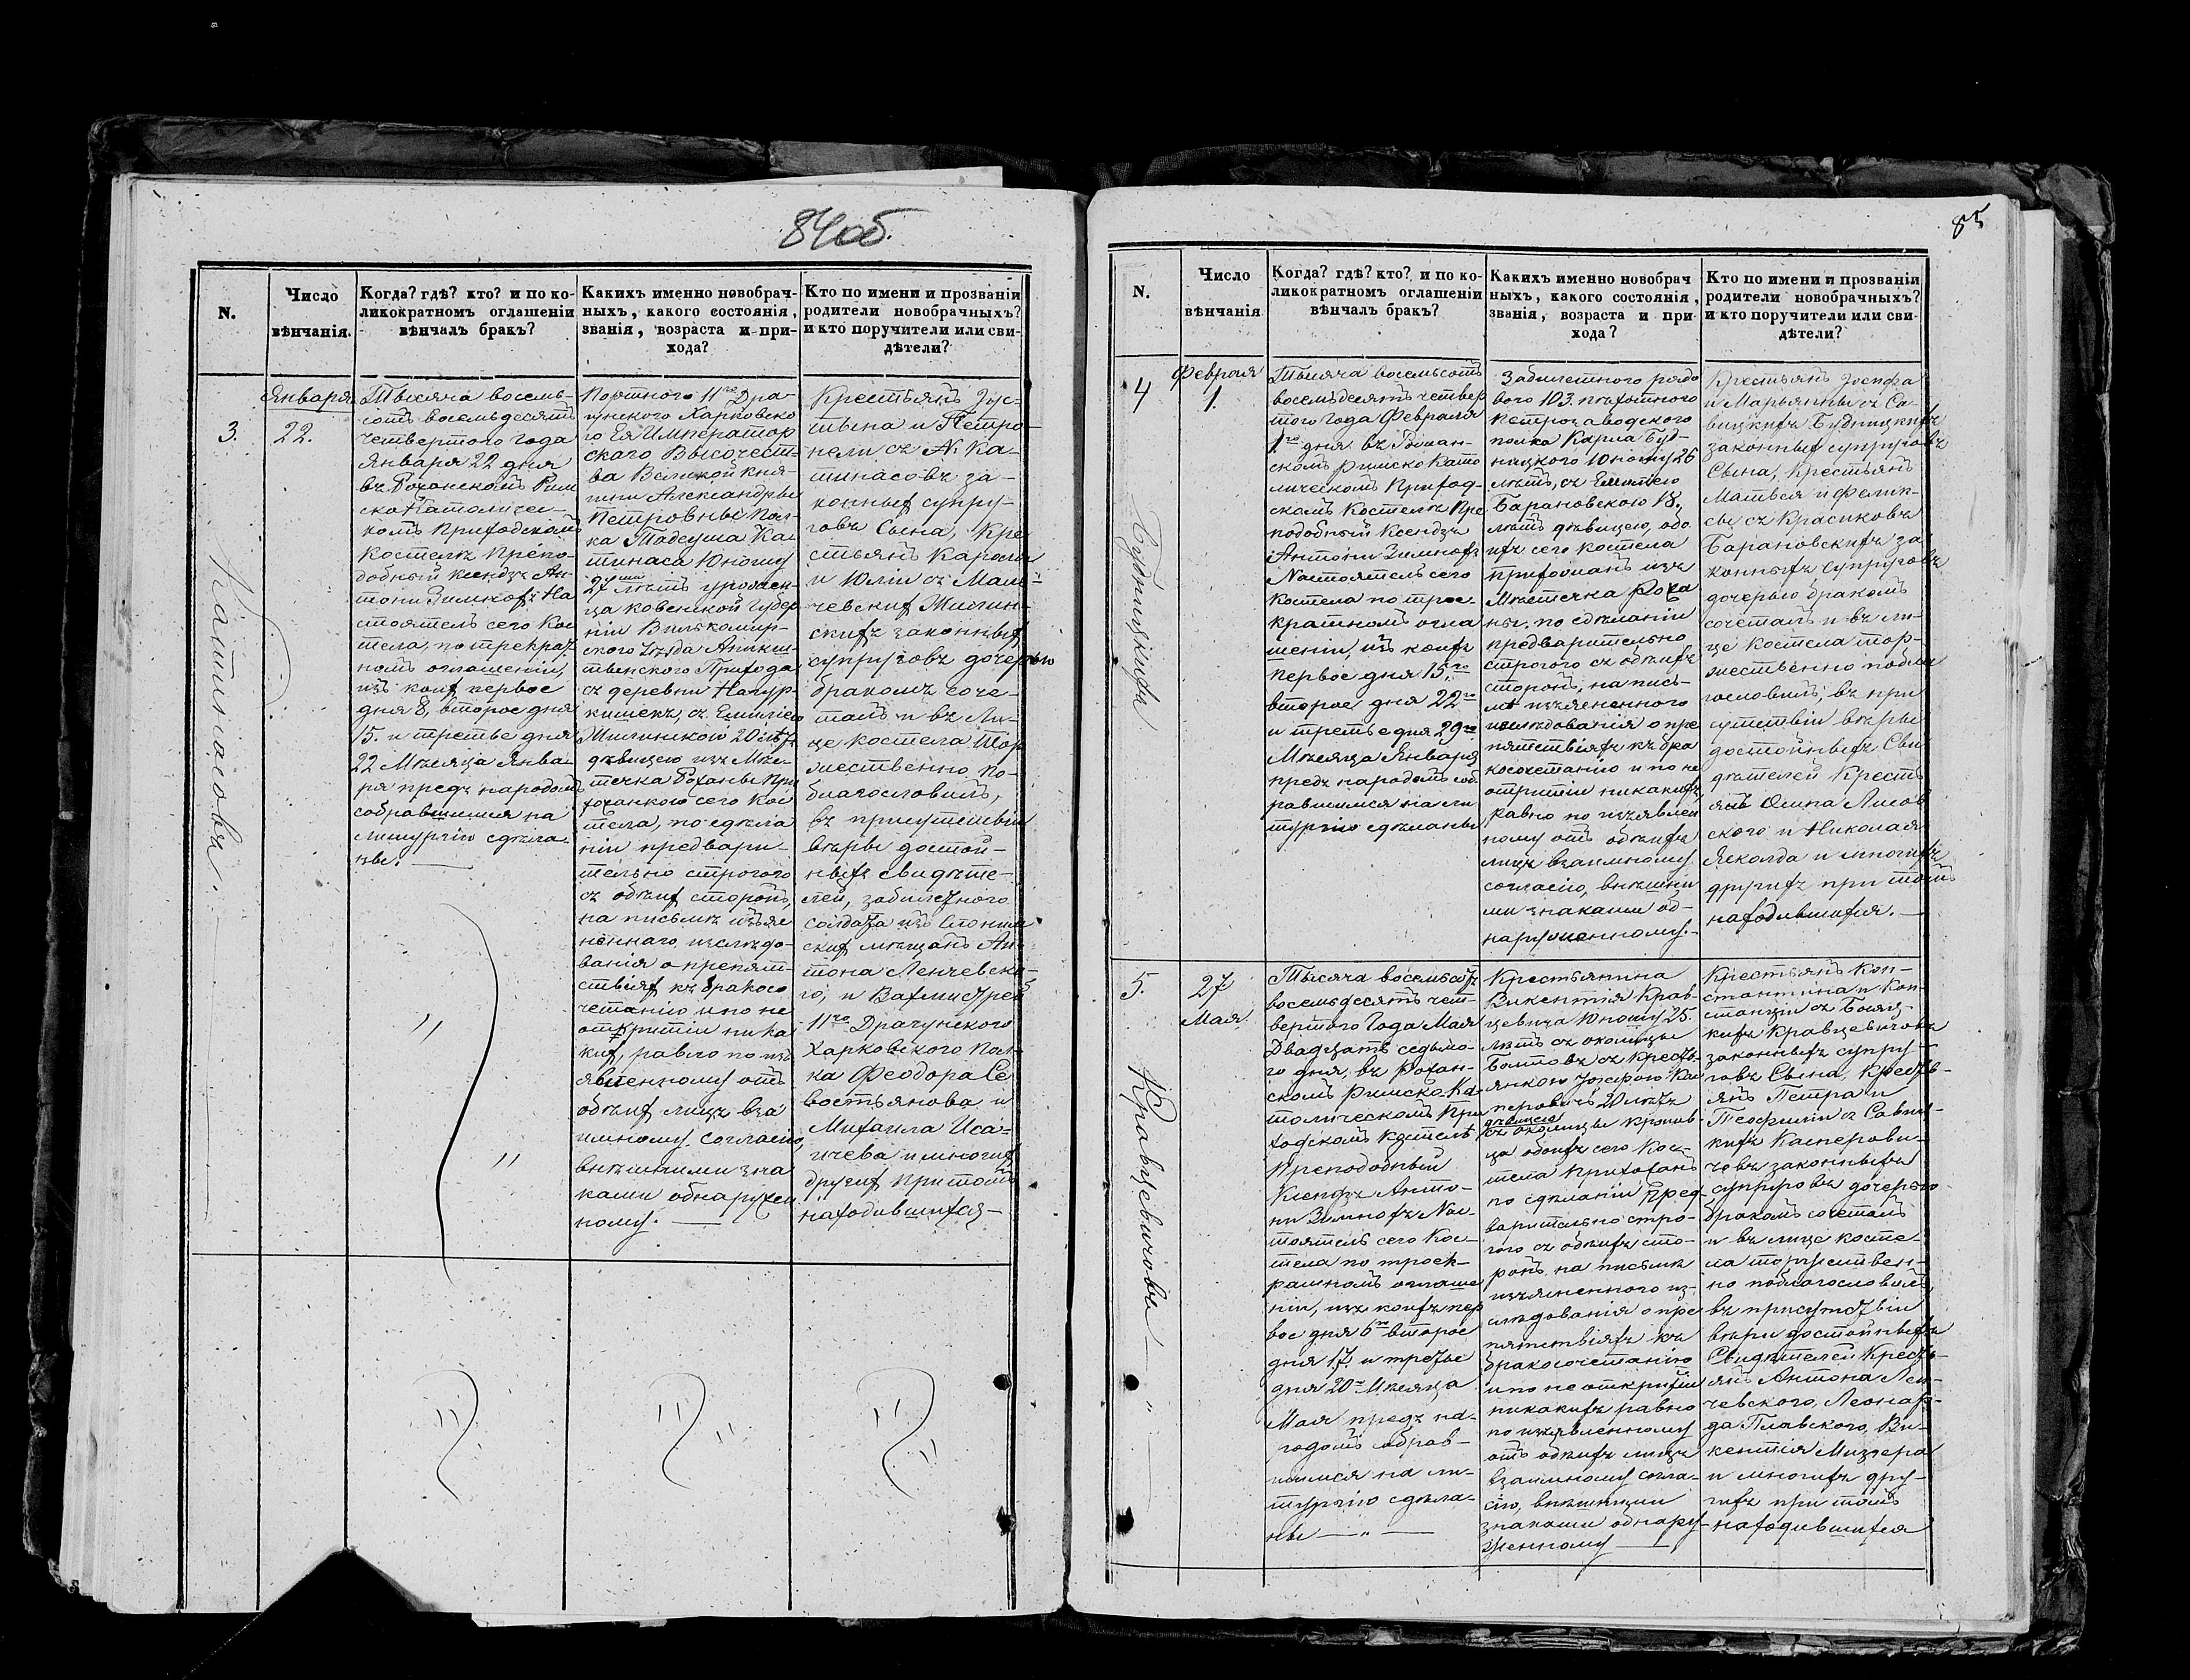 84об.
N.
Число
вѣнчанія.
Когда? гдѣ? кто? и по ко-
ликократномъ оглашеніи
вѣнчалъ бракъ?
Какихъ именно новобрач-
ныхъ, какого состоянія,
званія, возраста и при-
хода?
Кто по имени и прозваніи
родители новобрачныхъ?
и кто поручители или сви-
дѣтели?
3.
Января
22.
Тысяча восемь-
сотъ восемьдесятъ
четвертого года
Января 22 дня
въ Роханскомъ Рим
ско Католичес-
комъ Приходскомъ
костелѣ Препо-
добный ксендзъ Ан-
тони Зимнохъ На
стоятель сего Кос
тела, по трекрат
номъ оглашеніи,
изъ коихъ первое
дня 8, второе дня
15. и третье дня
22 Мѣсяца Янва-
ря предъ народомъ
собравшимся на
литургію сдѣла-
ны.
Портного 11го Дра-
гунского Харковско
го Ея Император
скаго Высочест-
ва Великой кня-
гини Александры
Петровны Пол-
ка Тадеуша Ка
тинаса Юношу
27ми лѣтъ урожен-
ца Ковенской Губер
ніи Вилькомир-
ского уѣзда
Прихода
съ деревни
съ Емиліею
20 лѣтъ
дѣвицею изъ Мѣс-
течка Роханы При
хожанкою сего Кос
тела, по сдѣла
ніи предвари-
тельно строгого
съ обѣихъ сторонъ,
на письмѣ изъяс
неннаго изслѣдо-
ванія о препят-
ствіяхъ къ бракосо
четанію и по не
откритіи ника
кихъ, равно по изъ
явленному отъ
обѣихъ лицъ вза
имному согласію,
внѣшними зна
ками обнаружен
ному.
Крестьянъ Юс-
тына и Петро-
нели съ N. Ка-
тинасовъ за-
конныхъ супру-
говъ Сына, Кре
стьянъ Кароля
и Юліи съ Маш-
чевскихъ Жилин-
скихъ законныхъ
супруговъ дочерью
бракомъ соче-
талъ и въ Ли-
це костела Тор
жественно по-
благословилъ,
въ присутствіи
вѣры достой-
ныхъ свидѣте-
лей, забилетного
солдата изъ Слоним
скихъ мѣщанъ Ан-
тона Ленчевско-
го, и Вахмистрей
11го Драгунского
Харковского Пол-
ка Феодора Се
востьянова и
Михаила Иса-
ичева и многихъ
другихъ при томъ
находившихся
Катинасовъ.
85
N.
Число
вѣнчанія
Когда? гдѣ? кто? и по ко-
ликократномъ оглашеніи
вѣнчалъ бракъ?
Какихъ именно новобрач
ныхъ, какого состоянія,
званія, возраста и при
хода?
Кто по имени и прозваніи
родители новобрачныхъ?
и кто поручители или сви-
дѣтели?
4
Февраля
1.
Тысяча восемьсотъ
восемьдесятъ четвер
того Года Февраля
1го дня въ Рохан-
скомъ Римско Като
лическомъ Приход-
скомъ Костелѣ Пре
подобный Ксендзъ
Антони Зимнохъ
Настоятель сего
костела по трое-
кратномъ огла
шеніи, изъ коихъ
первое дня 15го
второе дня 22го
и третье дня 29го
Мѣсяца Января
предъ народомъ соб
равшимся на ли
тургію сдѣланы
Забилетного рядо
вого 103. пѣхотного
Петрозаводского
полка Карла Буд-
ницкого Юношу 26
лѣтъ, съ Емилею
Барановскою 18.
лѣтъ дѣвицею, обо
ихъ сего костела
прихожанъ изъ
Мѣстечка Роха
ны: по сдѣланіи
предварительно
строгого съ обѣихъ
сторонъ, на пись-
мѣ изъясненного
изслѣдованія о пре
пятствіяхъ къ бра
косочетанію и по не
открытіи никакихъ,
равно по изъявлен
ному отъ обѣихъ
лицъ взаимному
согласію, внѣшни
ми знаками об-
наруженному.
Крестьянъ Іосифа
и Марьянны съ Са-
вицкихъ Будницкихъ
законныхъ супруговъ
Сына, Крестьянъ
Матвея и Фелик-
сы съ Красиковъ
Барановскихъ за
конныхъ супруговъ
дочерью бракомъ
сочеталъ и въ ли-
це костела тор-
жественно побла
гословилъ, въ при
сутствіи вѣры
достойныхъ Сви
дѣтелей Кресть
янъ Осипа Лисов
ского и Николая
и многихъ
другихъ при томъ
находившихся.
Будницкихъ
5.
27
Мая
Тысяча восемьсотъ
восемьдесятъ чет-
вертого Года Мая
Двадцать седьмо-
го дня, въ Рохан-
скомъ Римско-Ка-
толическомъ При
ходскомъ костелѣ
Преподобный
Ксендзъ Анто-
ни Зимнохъ Нас-
тоятель сего Кос-
тела по троек-
ратномъ оглаше
ніи, изъ коихъ пер
вое дня 6го второе
дня 17. и третье
дня 20го Мѣсяца
Мая предъ на-
родомъ собрав-
шимся на ли-
тургію сдѣла-
ны
Крестьянина
Викентія Крав-
цевича Юношу 25.
лѣтъ съ околицы
съ кресть-
янкою Іозефою Кас
перовичъ 20 лѣтъ
дѣвицею
съ околицы
обоихъ сего Кос-
тела Прихожанъ
по сдѣланіи пред-
варительно стро-
гого съ обѣихъ сто-
ронъ на письмѣ
изъясненного из-
слѣдованія о пре
пятствіяхъ къ
бракосочетанію
и по не открытіи
никакихъ равно
по изъявленному
отъ обѣихъ лицъ
взаимному согла-
сію, внѣшними
знаками обнару-
женному
Крестьянъ Кон-
стантина и Кон-
станціи съ
Кравцевичовъ
законныхъ супру-
говъ Сына, Кресть-
янъ Петра и
Теофилiи съ Савиц-
кихъ Касперови-
човъ законныхъ
супруговъ дочерью
бракомъ сочеталъ
и въ лице косте-
ла торжествен-
но поблагословилъ,
въ присутствіи
вѣры достойныхъ
Свидѣтелей Кресть-
янъ Антона Лен-
чевского, Леонар-
да Плавского, Ви-
кентія Мизгера
и многихъ дру-
гихъ при томъ
находившихся
Кравцевичовы